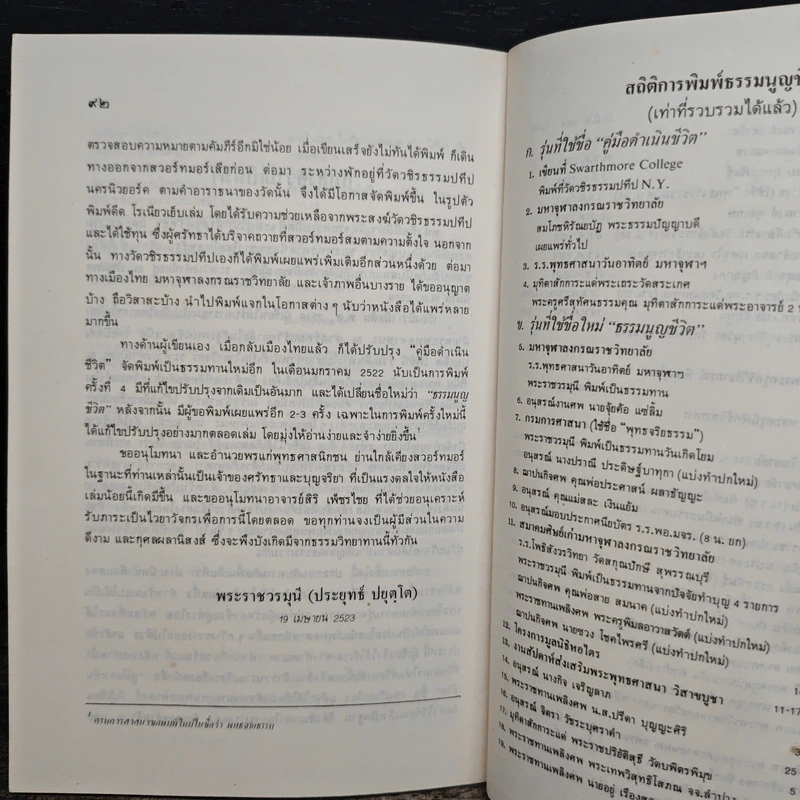 ๙๒
ตรวจสอบความหมายตามคัมภีร์อีกมิใช่น้อย เมื่อเขียนเสร็จยังไม่ทันได้พิมพ์ ก็เดิน
ทางออกจากสวอร์ทมอร์เสียก่อน ต่อมา ระหว่างพักอยู่ที่วัดวชิรธรรมปทีป
นครนิวยอร์ค ตามคำอาราธนาของวัดนั้น จึงได้มีโอกาสจัดพิมพ์ขึ้น ในรูปตัว
พิมพ์ดีด โรเนียวเย็บเล่ม โดยได้รับความช่วยเหลือจากพระสงฆ์วัดวชิรธรรมปทีป
และได้ใช้ทุน ซึ่งผู้ศรัทธาได้บริจาคถวายที่สวอร์ทมอร์สมตามความตั้งใจ นอกจาก
นั้น ทางวัดวชิรธรรมปทีปเองก็ได้พิมพ์เผยแพร่เพิ่มเติมอีกส่วนหนึ่งด้วย ต่อมา
ทางเมืองไทย มหาจุฬาลงกรณราชวิทยาลัย และเจ้าภาพอื่นบางราย ได้ขออนุญาต
บ้าง ถือวิสาสะบ้าง นำไปพิมพ์แจกในโอกาสต่าง ๆ นับว่าหนังสือได้แพร่หลาย
มากขึ้น
ทางด้านผู้เขียนเอง เมื่อกลับเมืองไทยแล้ว ก็ได้ปรับปรุง “คู่มือดำเนิน
ชีวิต” จัดพิมพ์เป็นธรรมทานใหม่อีก ในเดือนมกราคม 2522 นับเป็นการพิมพ์
ครั้งที่ 4 มีที่แก้ไขปรับปรุงจากเดิมเป็นอันมาก และได้เปลี่ยนชื่อใหม่ว่า “ธรรมนูญ
ชีวิต” หลังจากนั้น มีผู้ขอพิมพ์เผยแพร่อีก 2-3 ครั้ง เฉพาะในการพิมพ์ครั้งใหม่นี้
ได้แก้ไขปรับปรุงอย่างมากตลอดเล่ม โดยมุ่งให้อ่านง่ายและจำง่ายยิ่งขึ้น¹
ขออนุโมทนา และอำนวยพรแก่พุทธศาสนิกชน ย่านใกล้เคียงสวอร์ทมอร์
ในฐานะที่ท่านเหล่านั้นเป็นเจ้าของศรัทธาและบุญจริยา ที่เป็นแรงดลใจให้หนังสือ
เล่มน้อยนี้เกิดมีขึ้น และขออนุโมทนาอาจารย์สิริ เพ็ชรไชย ที่ได้ช่วยอนุเคราะห์
รับภาระเป็นไวยาวัจกรเพื่อการนี้โดยตลอด ขอทุกท่านจงเป็นผู้มีส่วนในความ
ดีงาม และกุศลผลานิสงส์ ซึ่งจะพึงบังเกิดมีจากธรรมวิทยาทานนี้ทั่วกัน
พระราชวรมุนี (ประยุทธ์ ปยุตฺโต)
19 เมษายน 2523
¹ กรมการศาสนาขอพิมพ์ใหม่ในชื่อว่า พุทธจริยธรรม
สถิติการพิมพ์ธรรมนูญชี
(เท่าที่รวบรวมได้แล้ว)
ก. รุ่นที่ใช้ชื่อ “คู่มือดำเนินชีวิต”
1. เขียนที่ Swarthmore College
พิมพ์ที่วัดวชิรธรรมปทีป N.Y.
2. มหาจุฬาลงกรณราชวิทยาลัย
สมโภชหิรัณยบัฏ พระธรรมปัญญาบดี
เผยแพร่ทั่วไป
3. ร.ร.พุทธศาสนาวันอาทิตย์ มหาจุฬาฯ
4. มุทิตาสักการะแด่พระเถระวัดสระเกศ
พระครูศรีสุทัศนธรรมคุณ มุทิตาสักการะแด่พระอาจารย์ 2
ข. รุ่นที่ใช้ชื่อใหม่ “ธรรมนูญชีวิต”
5. มหาจุฬาลงกรณราชวิทยาลัย
ร.ร.พุทธศาสนาวันอาทิตย์ มหาจุฬาฯ
พระราชวรมุนี พิมพ์เป็นธรรมทาน
6. อนุสรณ์งานศพ นายจุ้ยค้อ แซ่ลิ้ม
7. กรมการศาสนา (ใช้ชื่อ “พุทธจริยธรรม”)
พระราชวรมุนี พิมพ์เป็นธรรมทานวันเกิดโยม
อนุสรณ์ นางปราณี ประดิษฐ์บาทุกา (แบ่งทำปกใหม่)
8. ฌาปนกิจศพ คุณพ่อประศาสน์ ผลาธัญญะ
9. อนุสรณ์ คุณแม่สละ เงินแย้ม
10. อนุสรณ์มอบประกาศนียบัตร ร.ร.พอ.มจร. (8 น. ยก)
11. สมาคมศิษย์เก่ามหาจุฬาลงกรณราชวิทยาลัย
ร.ร.โพธิสังวรวิทยา วัดสกุณปักษี สุพรรณบุรี
พระราชวรมุนี พิมพ์เป็นธรรมทานจากปัจจัยทำบุญ 4 รายการ
ฌาปนกิจศพ คุณพ่อสาย สมนาค (แบ่งทำปกใหม่)
พระราชทานเพลิงศพ พระครูพิมลอาวาสวัตต์ (แบ่งทำปกใหม่)
ฌาปนกิจศพ นายซวง โชคไพรศรี (แบ่งทำปกใหม่)
12. โครงการมูลนิธิหอไตร
13. งานสัปดาห์ส่งเสริมพระพุทธศาสนา วิสาขบูชา
14. อนุสรณ์ นางกิจ เจริญลาภ
11-17
15. พระราชทานเพลิงศพ น.ส.ปรีดา บุญญะศิริ
16. อนุสรณ์ จิตรา วัชระบุศราคำ
17. มุทิตาสักการะแด่ พระราชปริยัติสุธี วัดบพิตรพิมุข
25
18. พระราชทานเพลิงศพ พระเทพวิสุทธิโสภณ จจ.ลำปาง
5
19. พระราชทานเพลิงศพ นายอยู่